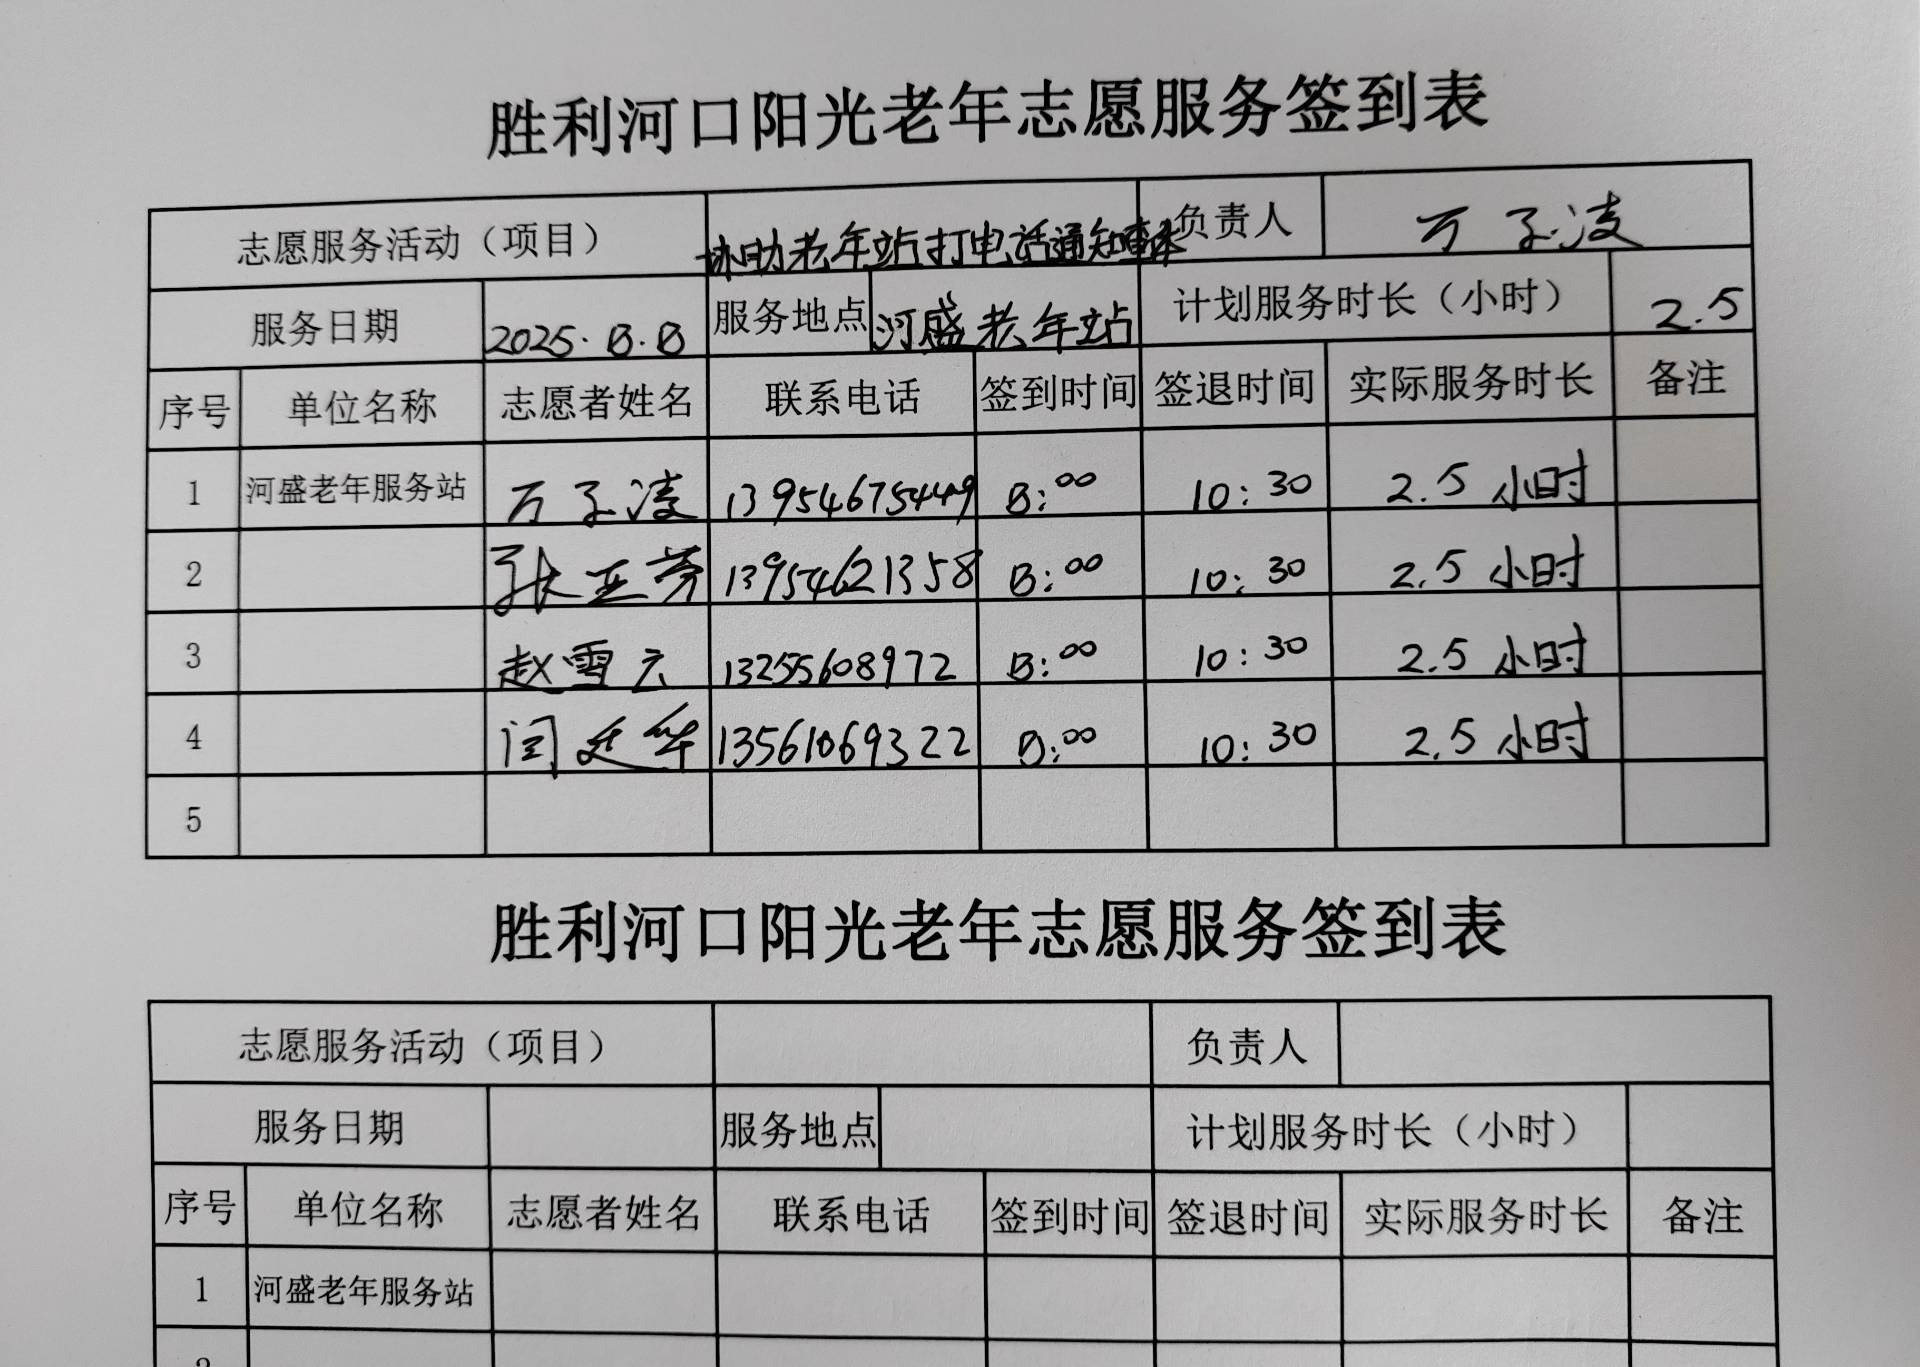 胜利河口阳光老年志愿服务签到表
志愿服务活动（项目） 协助老年站打电话通知 负责人 万子凌
服务日期 2025.8.8 服务地点 河盛老年站 计划服务时长（小时） 2.5
序号 单位名称 志愿者姓名 联系电话 签到时间 签退时间 实际服务时长 备注
1 河盛老年服务站 万子凌 13954675449 8:00 10:30 2.5小时
2 张亚芳 13954621358 8:00 10:30 2.5小时
3 赵雪云 13255608972 8:00 10:30 2.5小时
4 闫廷华 13561069322 8:00 10:30 2.5小时
5
胜利河口阳光老年志愿服务签到表
志愿服务活动（项目） 负责人
服务日期 服务地点 计划服务时长（小时）
序号 单位名称 志愿者姓名 联系电话 签到时间 签退时间 实际服务时长 备注
1 河盛老年服务站